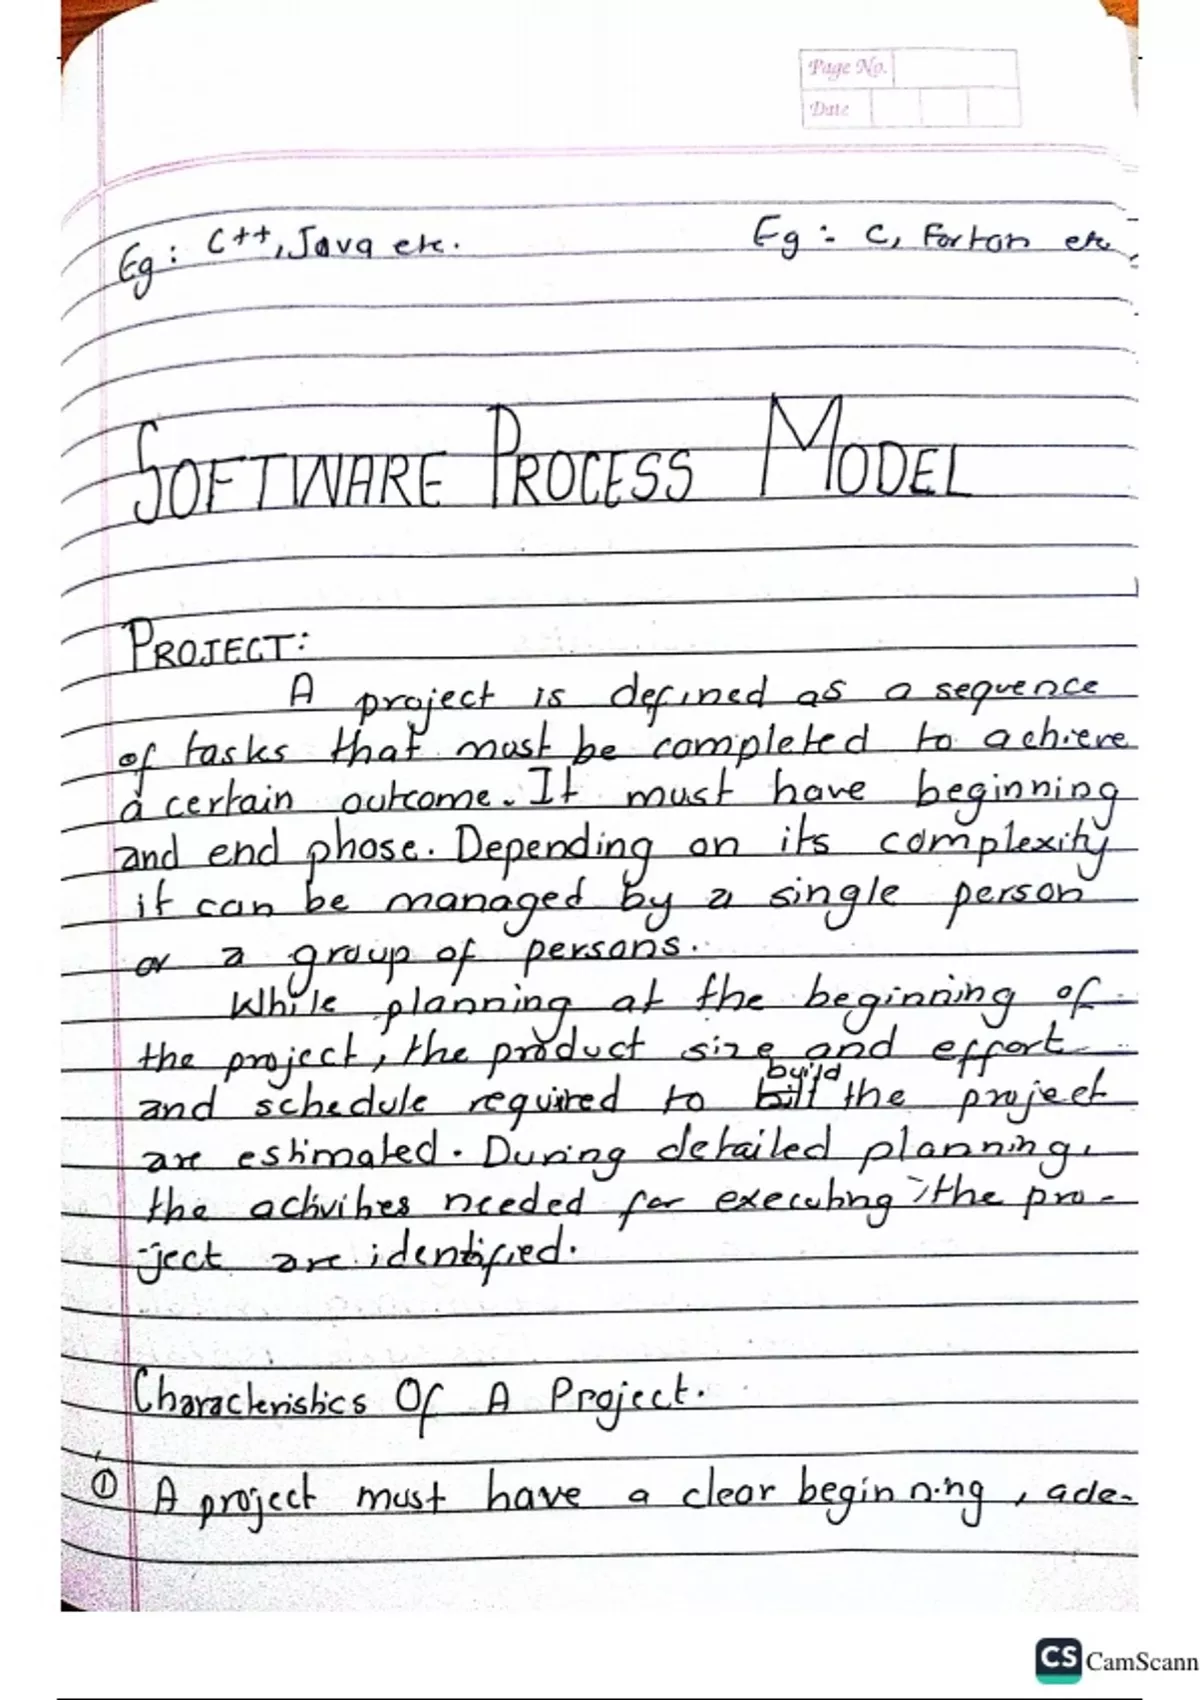 Page No.
Date
Eg: C++, Java etc. Eg: C, Fortan etc
SOFTWARE PROCESS MODEL
PROJECT:
A project is defined as a sequence
of tasks that must be completed to achieve
a certain outcome. It must have beginning
and end phase. Depending on its complexity
it can be managed by a single person
or a group of persons.
While planning at the beginning of
the project, the product size and effort
build
and schedule required to bill the project
are estimated. During detailed planning,
the activities needed for executing the pro-
-ject are identified.
Characteristics Of A Project.
① A project must have a clear beginning, ade-
CS CamScann